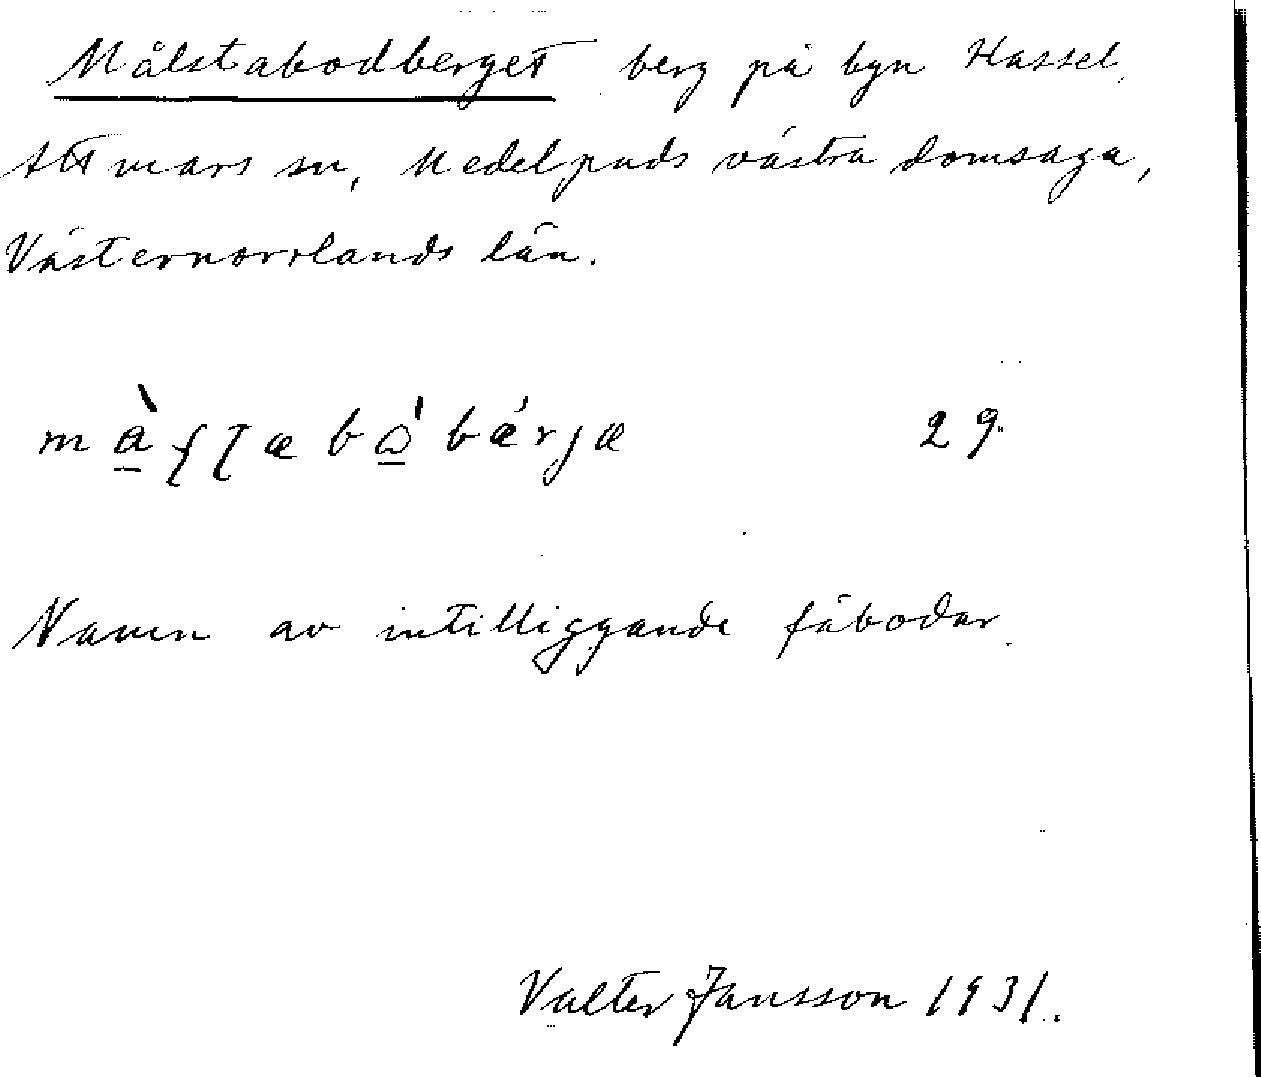 Målstabodberget berg på byn Hassel
Attmars sn, Medelpads västra domsaga,
Västernorrlands län.
29.
Namn av intilliggande fäbodar.
Valter Jansson 1931.